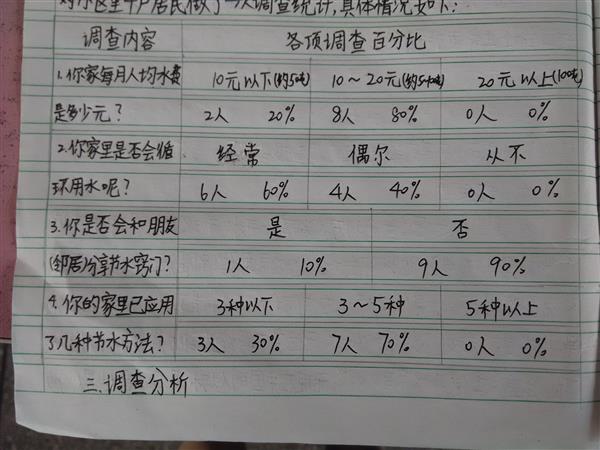 对小区里十户居民做了一次调查统计,具体情况如下:
调查内容 各项调查百分比
1.你家每月人均水费 10元以下(约5吨) 10~20元(约5-10吨) 20元以上(10吨)
是多少元? 2人 20% 8人 80% 0人 0%
2.你家里是否会循 经常 偶尔 从不
环用水呢? 6人 60% 4人 40% 0人 0%
3.你是否会和朋友 是 否
(邻居)分享节水窍门? 1人 10% 9人 90%
4.你的家里已应用 3种以下 3~5种 5种以上
了几种节水方法? 3人 30% 7人 70% 0人 0%
三.调查分析